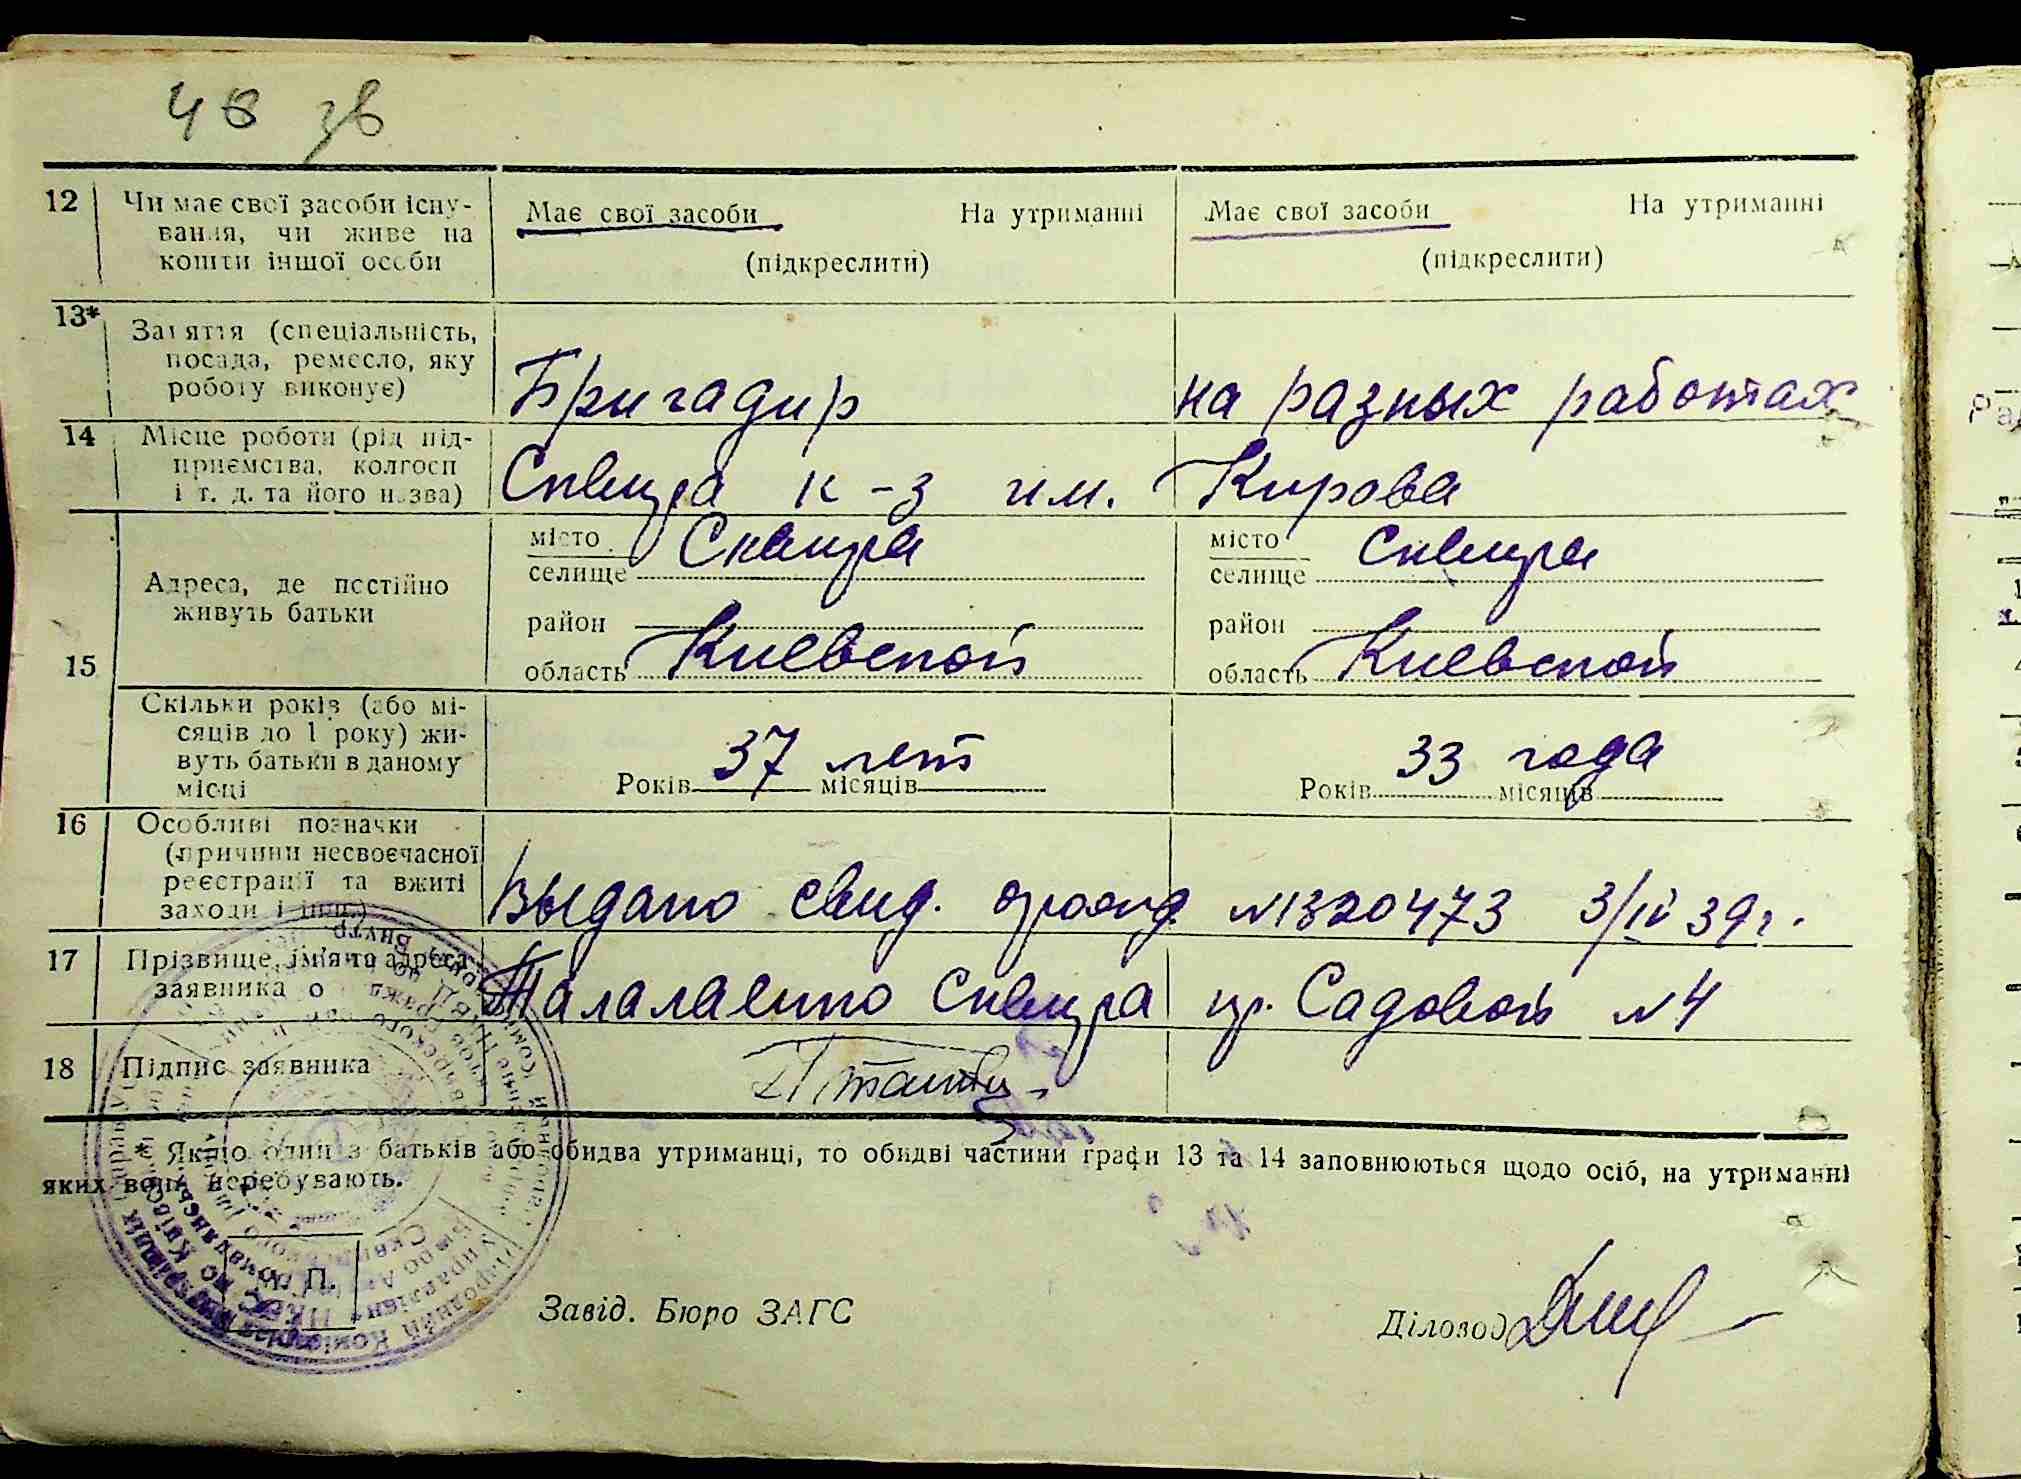 48 зв
12 Чи має свої засоби існу-
вання, чи живе на
кошти іншої особи
Має свої засоби На утриманні
(підкреслити)
Має свої засоби На утриманні
(підкреслити)
13* Заняття (спеціальність,
посада, ремесло, яку
роботу виконує)
Бригадир
на разных работах
14 Місце роботи (рід під-
приємства, колгосп
і т. д. та його назва)
Сквира к-з им. Кирова
15 Адреса, де постійно
живуть батьки
місто Сквира
селище
район
область Киевской
місто Сквира
селище
район
область Киевской
Скільки років (або мі-
сяців до 1 року) жи-
вуть батьки в даному
місці
Років 37 лет місяців
Років 33 года місяців
16 Особливі позначки
(причини несвоєчасної
реєстрації та вжиті
заходи і інш.)
Выдано свид. о рожд. №1320473 3/IV 39 г.
17 Прізвище, ім'я та адреса
заявника
Талалаенко Сквира ул. Садовой №4
18 Підпис заявника
* Якщо один з батьків або обидва утриманці, то обидві частини графи 13 та 14 заповнюються щодо осіб, на утриманні
яких вони перебувають.
П.
Завід. Бюро ЗАГС
Діловод